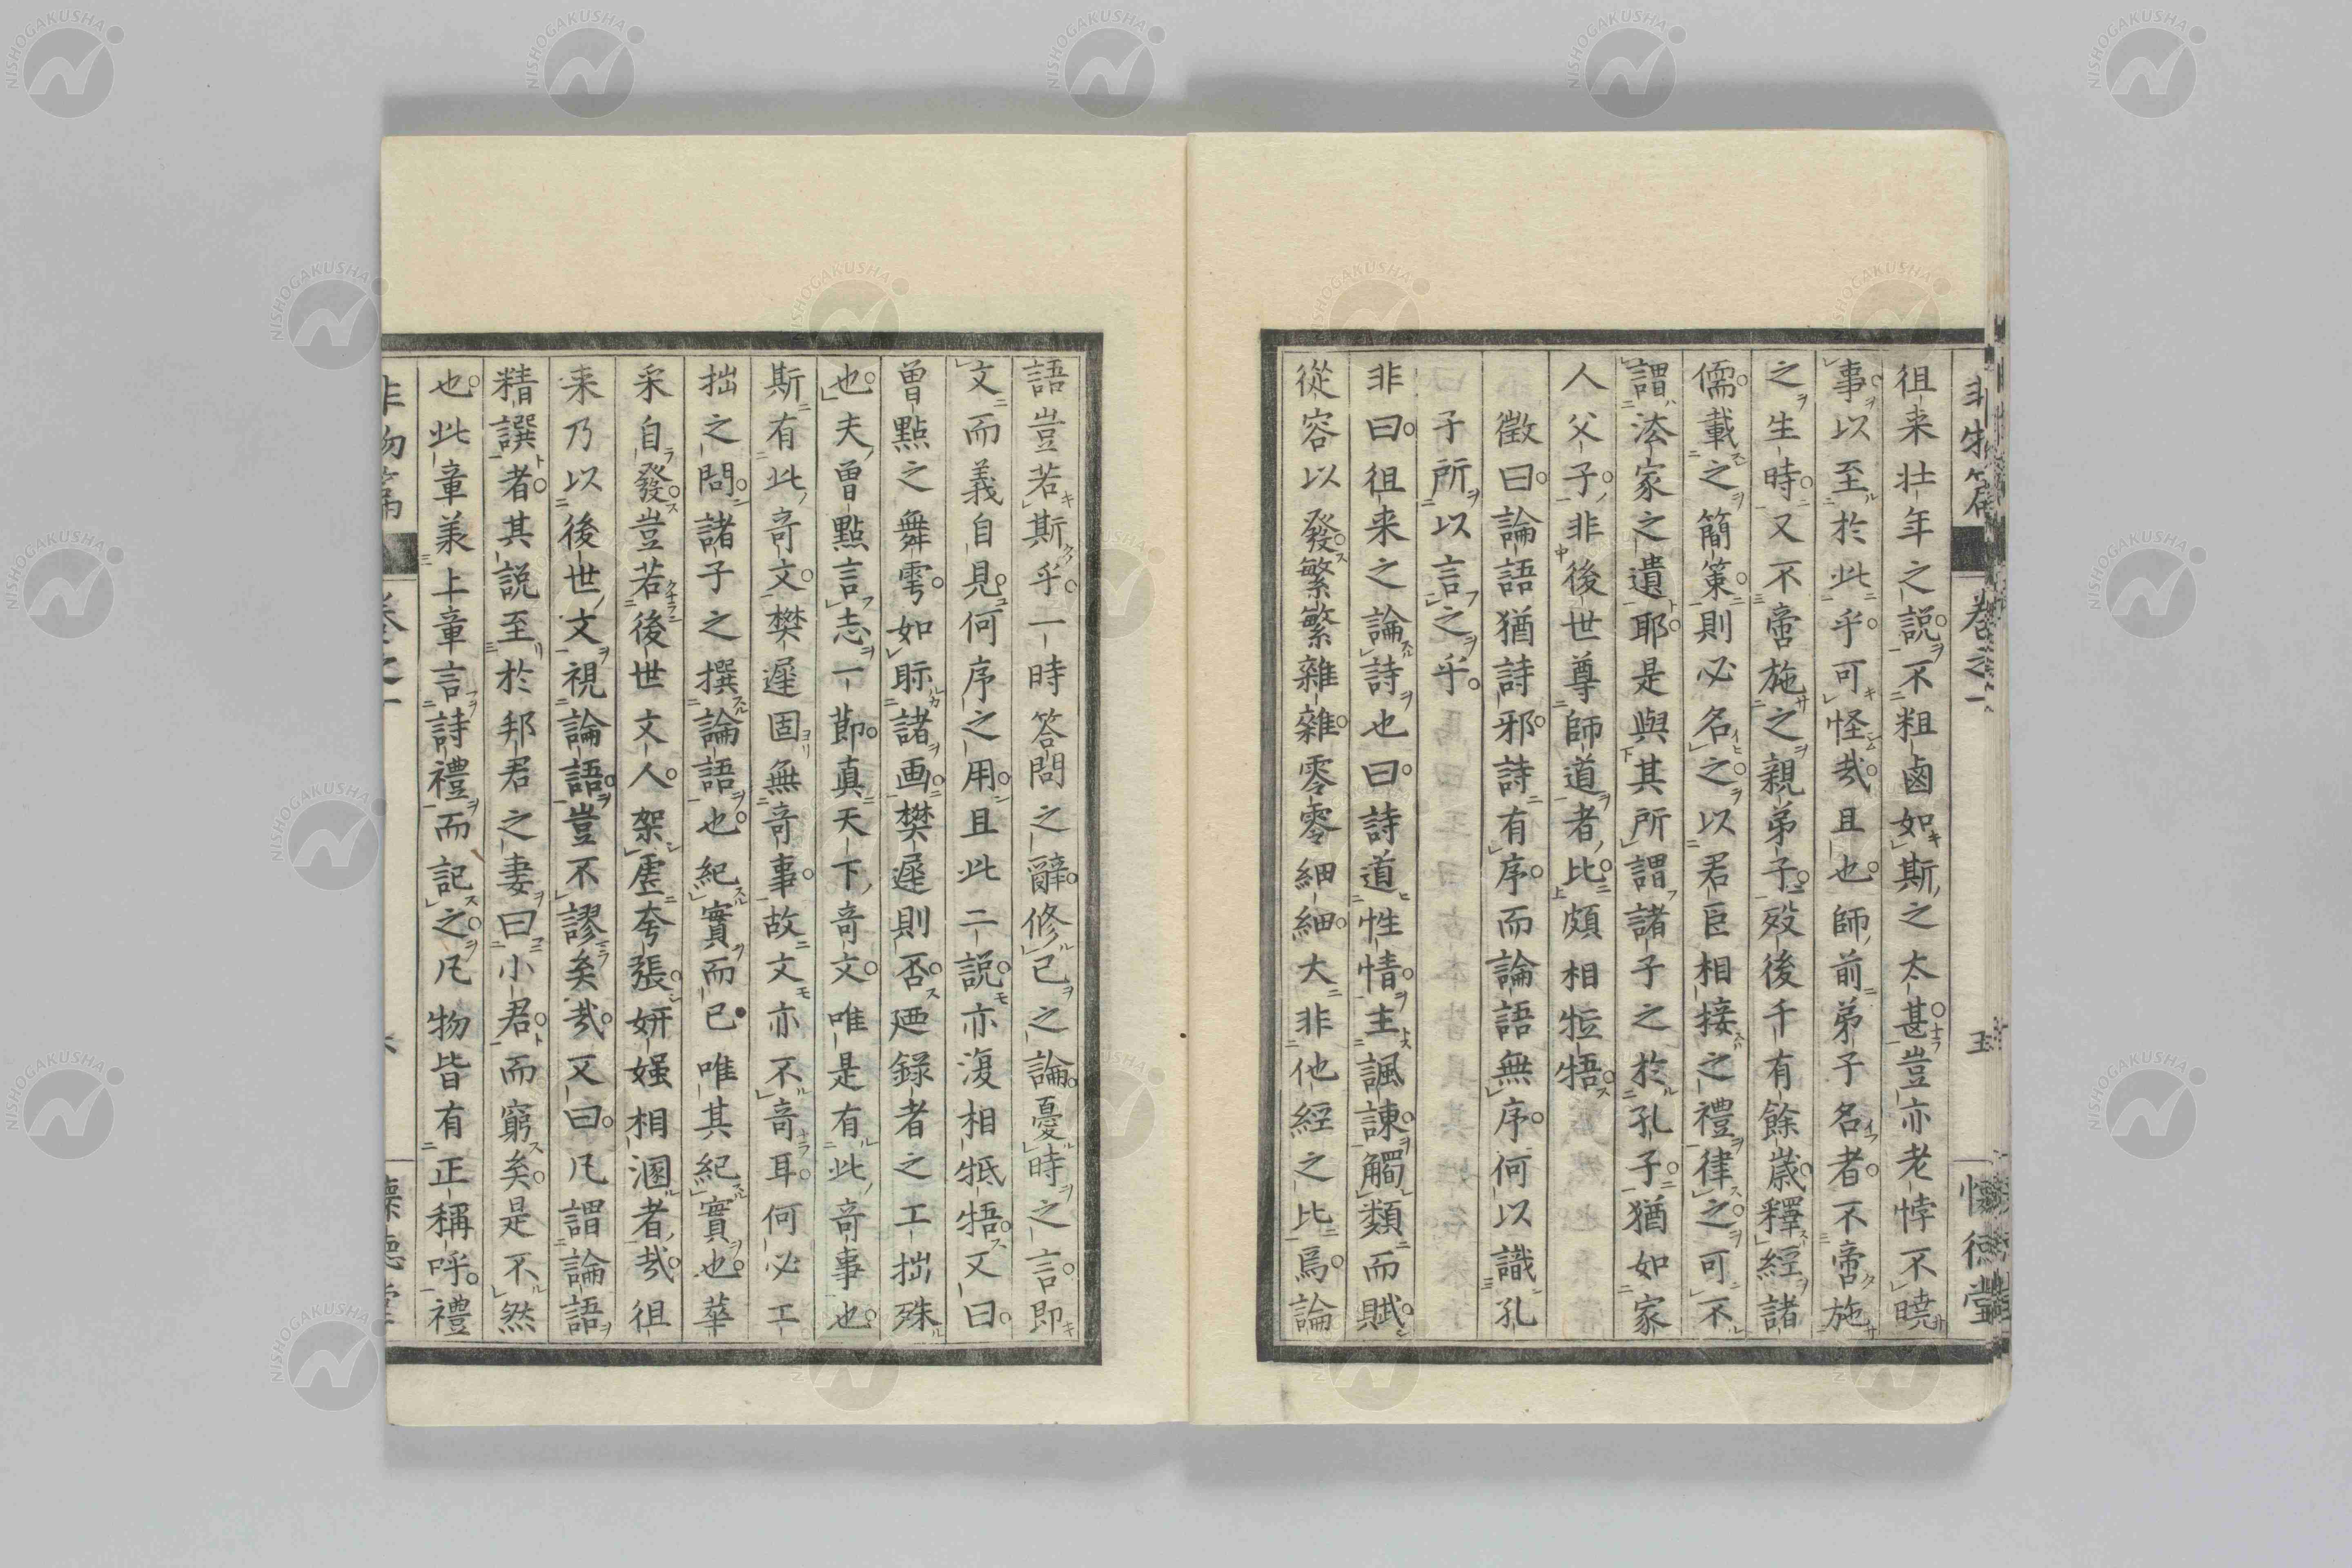 非物篇 卷之一 五 懷德堂
徂來壯年之說不粗鹵如斯之太甚豈亦老悖不曉
事以至於此乎可怪哉且也師前弟子名者不啻施
之生時又不啻施之親弟子歿後千有餘歲釋經諸
儒載之簡策則必名之以君臣相接之禮律之可不
謂法家之遺耶是與其所謂諸子之於孔子猶如家
人父子非後世尊師道者比頗相牴牾
徵曰論語猶詩邪詩有序而論語無序何以識孔
子所以言之乎
非曰徂來之論詩也曰詩道性情主諷諫觸類而賦
從容以發繁繁雜雜零零細細大非他經之比焉論
語豈若斯乎一時答問之辭修己之論憂時之言即
文而義自見何序之用且此二說亦復相牴牾又曰
曾點之舞雩如眎諸画樊遲則否廼錄者之工拙殊
也夫曾點言志一節真天下奇文唯是有此奇事也
斯有此奇文樊遲固無奇事故文亦不奇耳何必工
拙之問諸子之撰論語也紀實而已唯其紀實也華
采自發豈若後世文人架虛夸張妍媸相溷者哉徂
来乃以後世文視論語豈不謬矣哉又曰凡謂論語
精譔者其說至於邦君之妻曰小君而窮矣是不然
也此章羕上章言詩禮而記之凡物皆有正稱呼禮
非物篇 卷之一 懷德堂
NISHOGAKUSHA